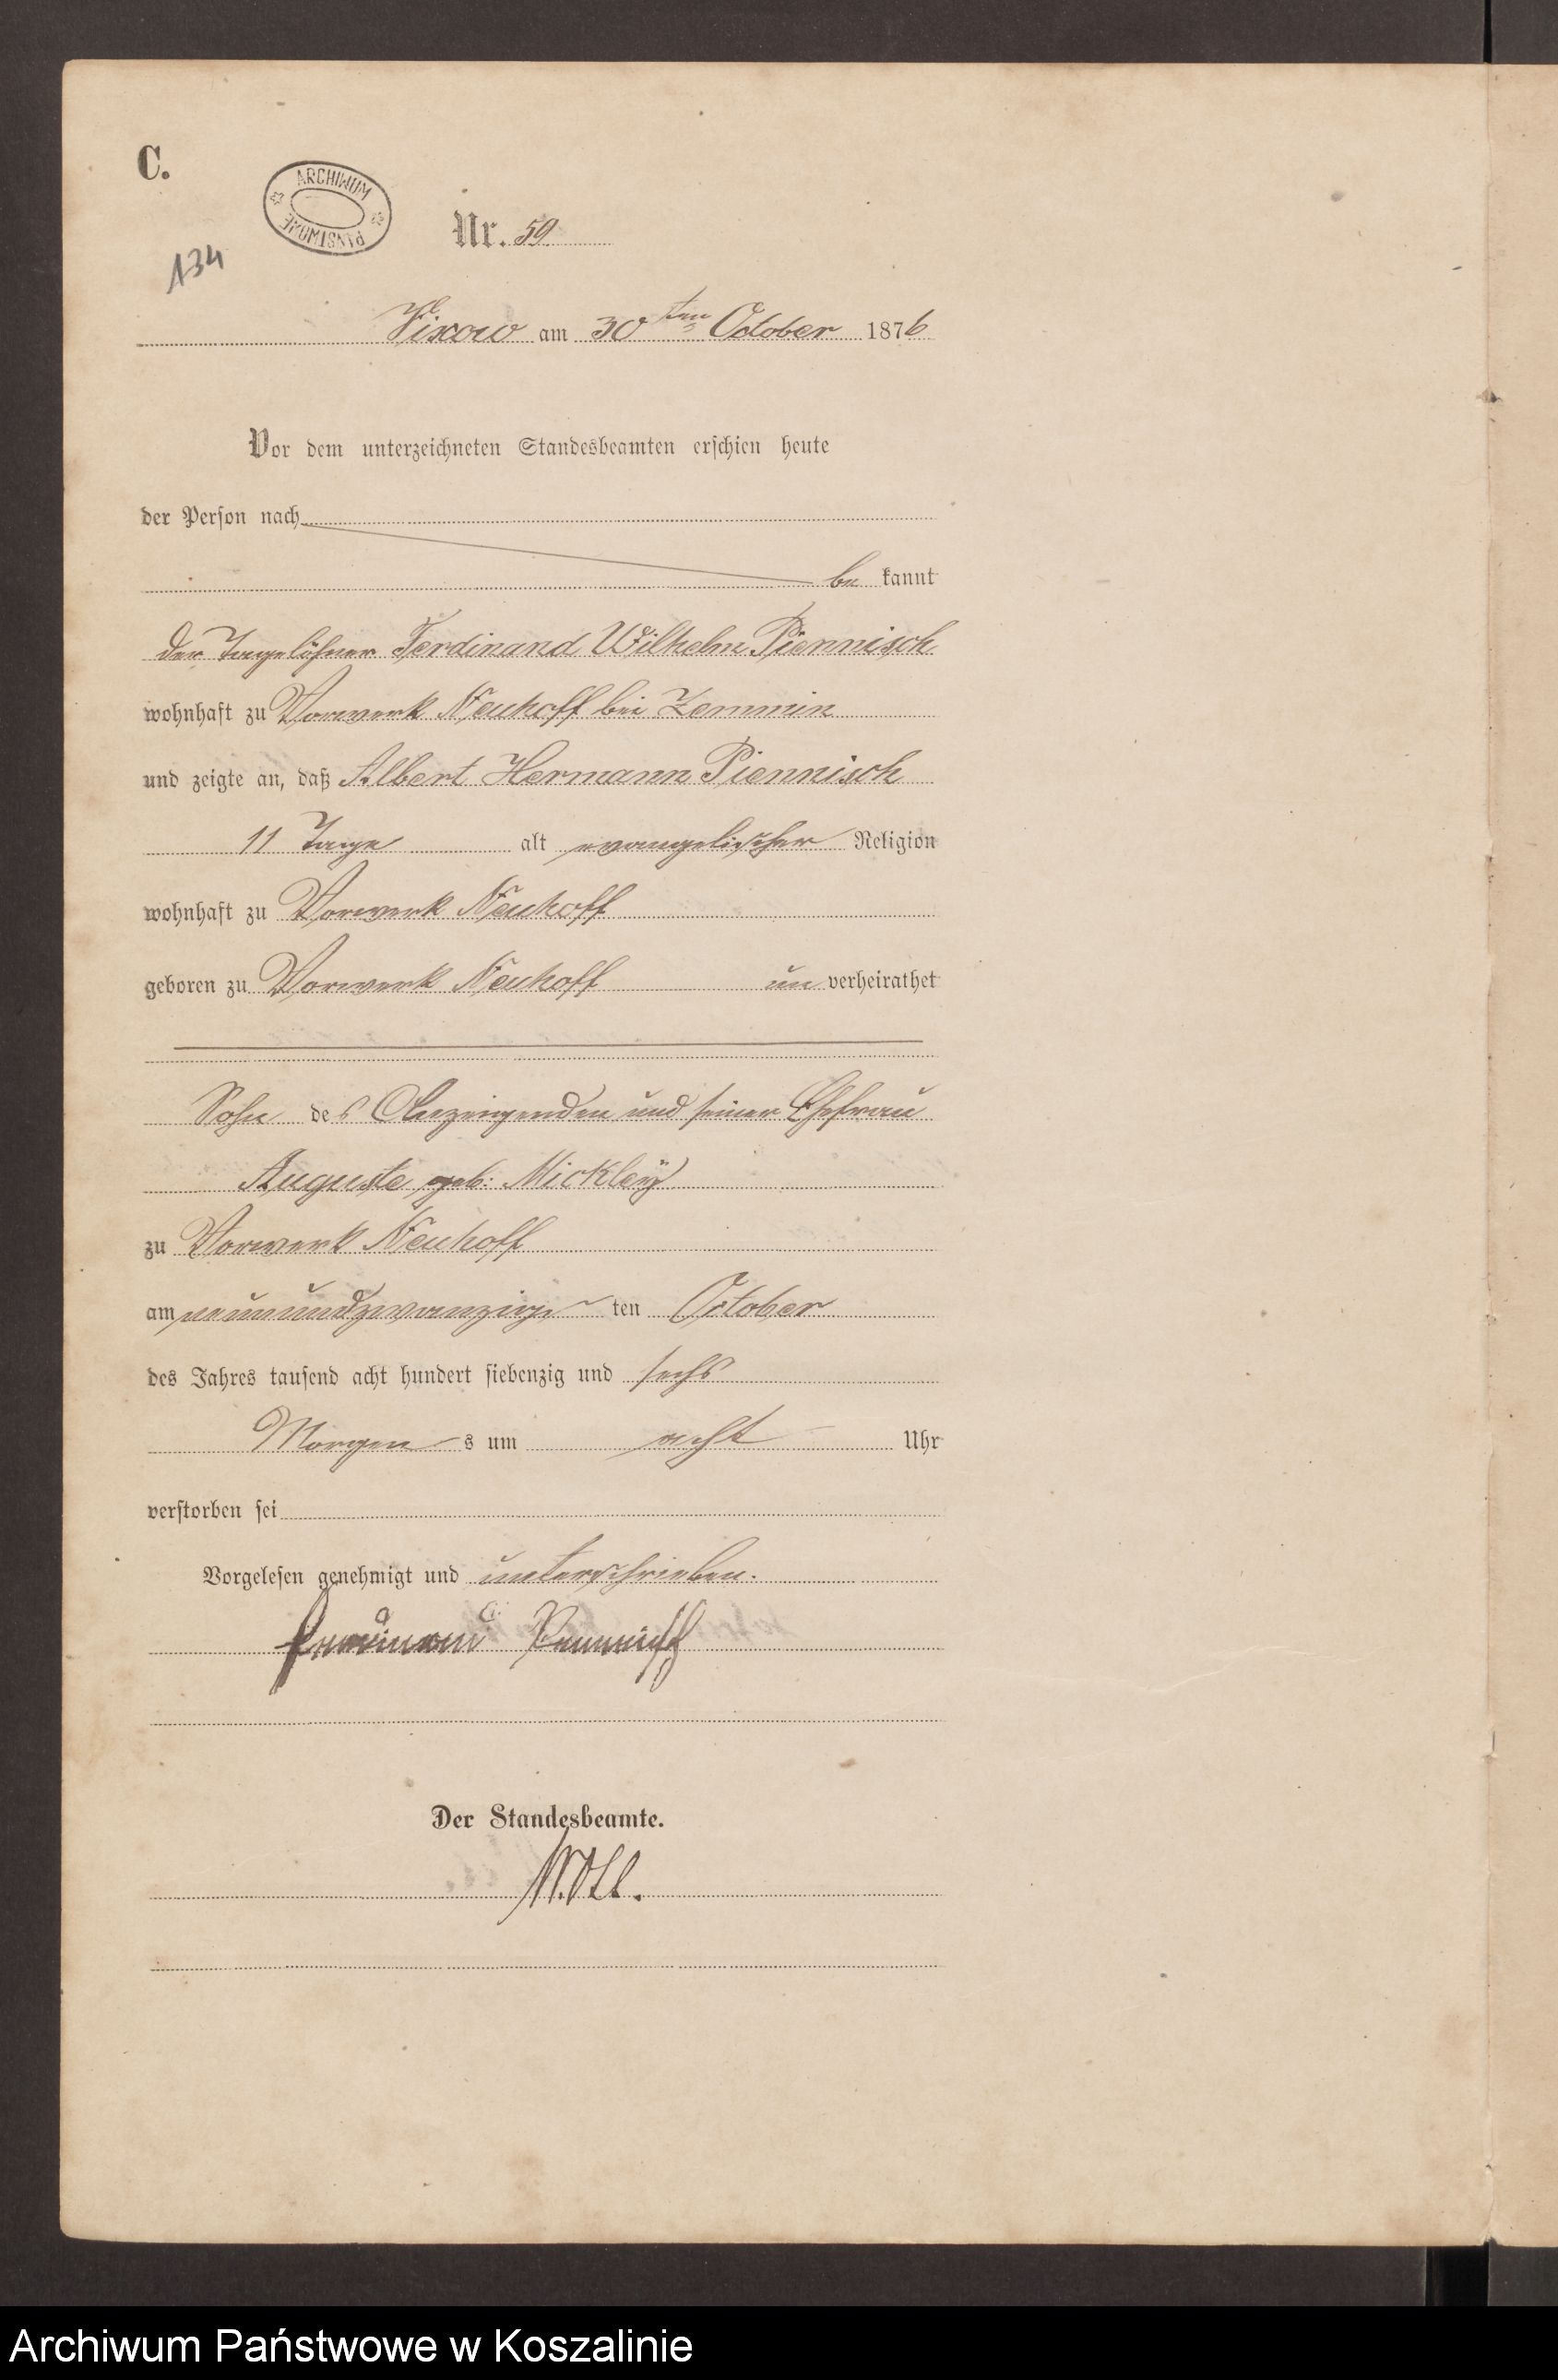 C.
ARCHIWUM
PAŃSTWOWE
134
Nr. 59.
Vixow am 30ten October 1876
Vor dem unterzeichneten Standesbeamten erschien heute
der Person nach
be kannt
der Tagelöhner Ferdinand Wilhelm Piennisch
wohnhaft zu Vorwerk Neuhoff bei Zemmin
und zeigte an, daß Albert Hermann Piennisch
11 Tage alt evangelischer Religion
wohnhaft zu Vorwerk Neuhoff
geboren zu Vorwerk Neuhoff un verheirathet
Sohn des Anzeigenden und seiner Ehefrau
Auguste geb: Mickley
zu Vorwerk Neuhoff
am neunundzwanzig ten October
des Jahres tausend acht hundert siebenzig und sechs
Morgen s um acht Uhr
verstorben sei
Vorgelesen genehmigt und unterschrieben.
Der Standesbeamte.
Archiwum Państwowe w Koszalinie